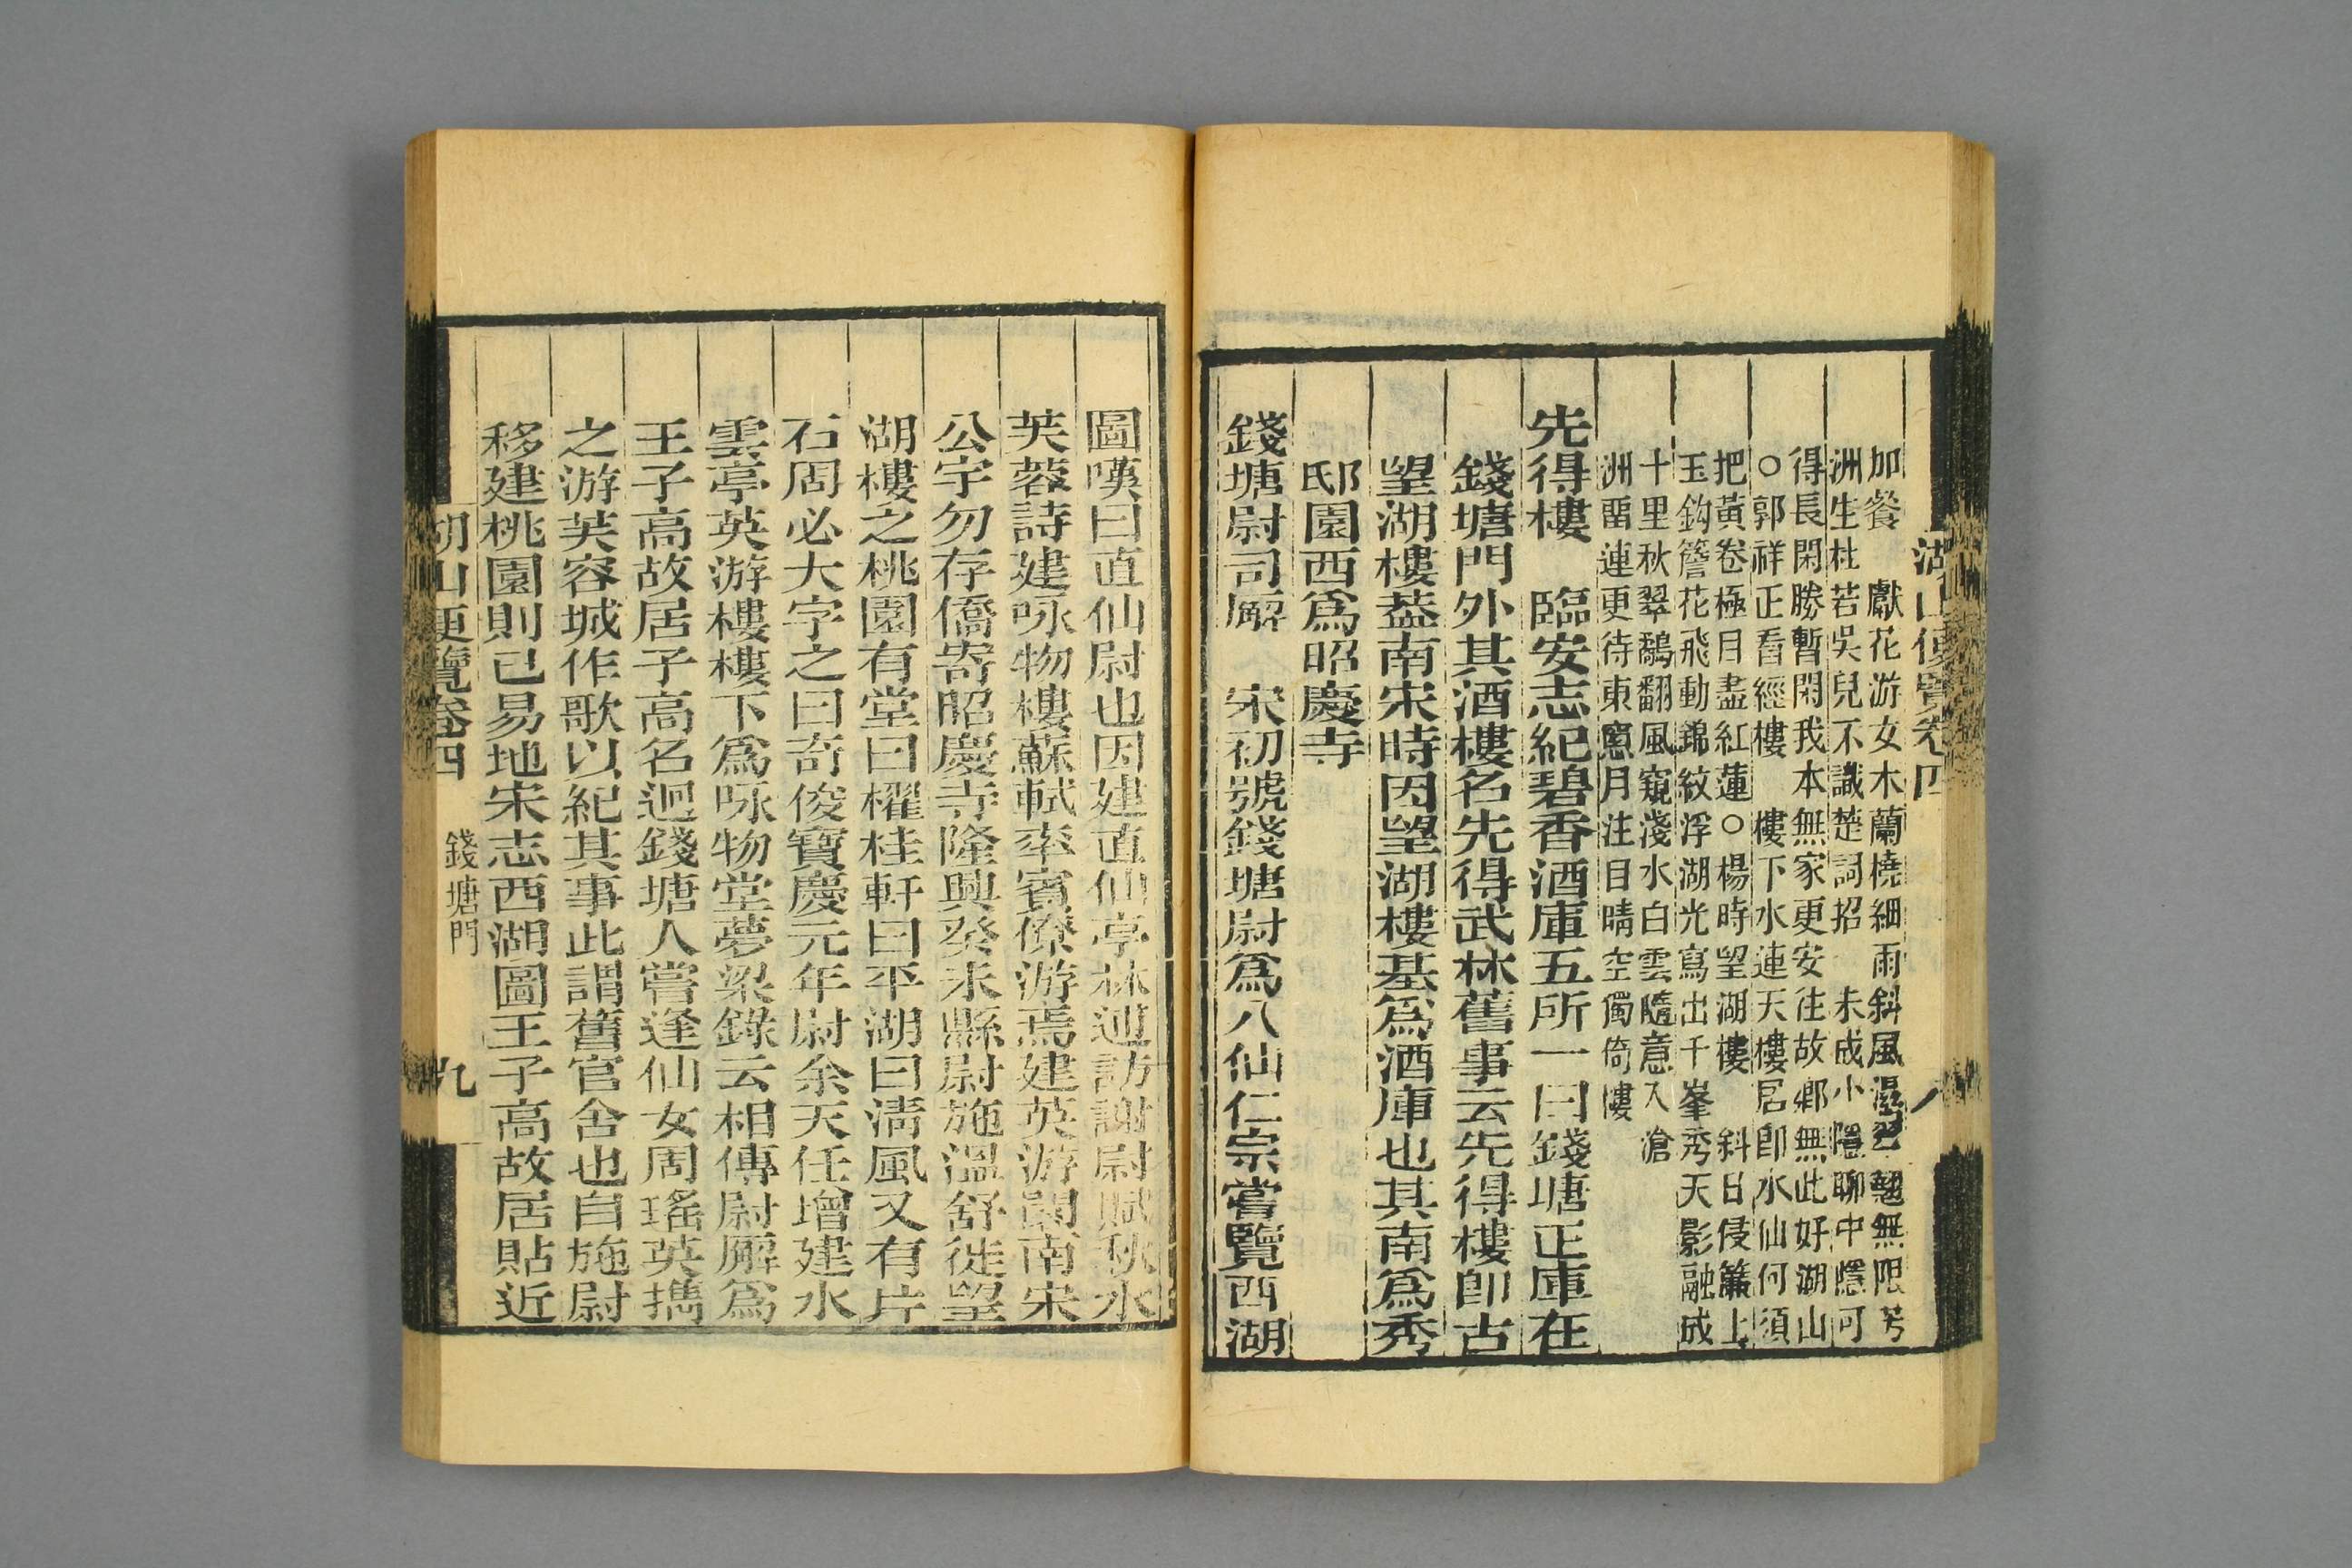 湖山便覽卷四
八
加餐　獻花游女木蘭橈細雨斜風濕翠翹無限芳
洲生杜若吳兒不識楚詞招　未成小隱聊中隱可
得長閑勝暫閑我本無家更安往故鄉無此好湖山
○郭祥正看經樓　樓下水連天樓居卽水仙何須
把黃卷極目盡紅蓮○楊時望湖樓　斜日侵簾上
玉鈎簷花飛動錦紋浮湖光寫出千峯秀天影融成
十里秋翠鷸翻風窺淺水白雲隨意入滄
洲畱連更待東窻月注目晴空獨倚樓
先得樓　臨安志紀碧香酒庫五所一曰錢塘正庫在
錢塘門外其酒樓名先得武林舊事云先得樓卽古
望湖樓葢南宋時因望湖樓基爲酒庫也其南爲秀
邸園西爲昭慶寺
錢塘尉司廨　宋初號錢塘尉爲八仙仁宗嘗覽西湖
圖嘆曰直仙尉也因建直仙亭林逋訪謝尉賦秋水
芙蓉詩建咏物樓蘇軾率賓僚游焉建英游閣南宋
公宇勿存僑寄昭慶寺隆興癸未縣尉施溫舒徙望
湖樓之桃園有堂曰櫂桂軒曰平湖曰淸風又有片
石周必大字之曰奇俊寶慶元年尉余天任增建水
雲亭英游樓樓下爲咏物堂夢梁錄云相傳尉廨爲
王子高故居子高名迥錢塘人嘗逢仙女周瑤英攜
之游芙容城作歌以紀其事此謂舊官舍也自施尉
移建桃園則已易地宋志西湖圖王子高故居貼近
湖山便覽卷四
錢塘門
九